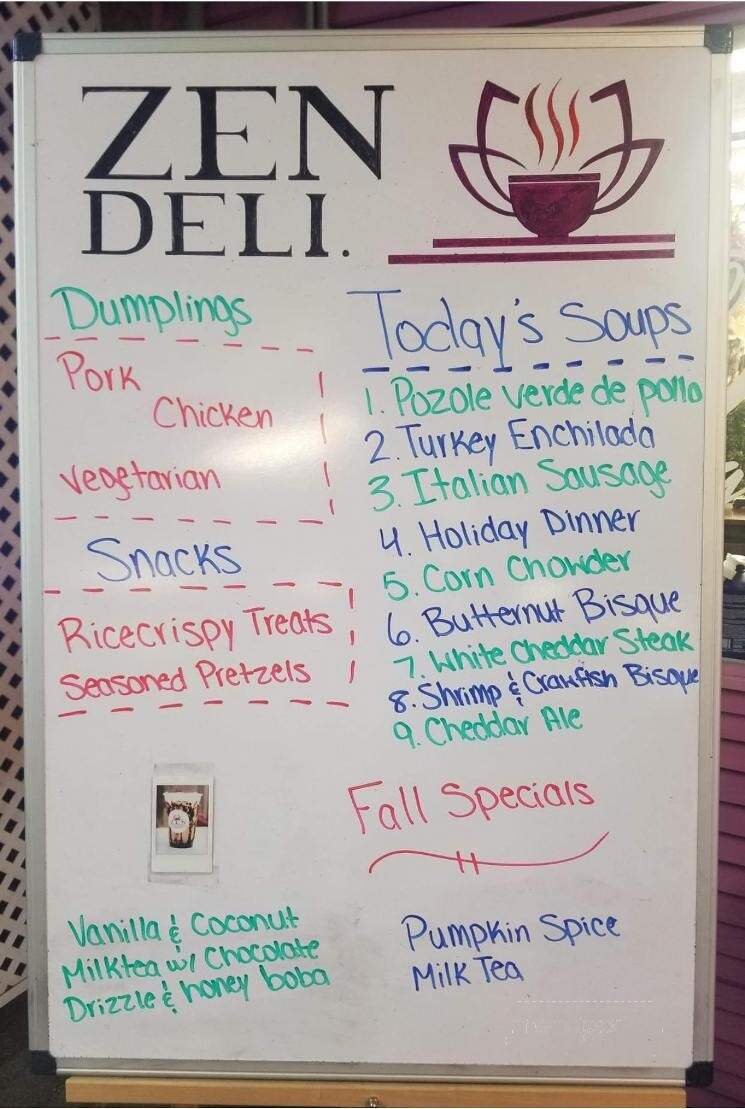 ZEN
DELI.
Dumplings
Pork
Chicken
vegetarian
Snacks
Ricecrispy Treats
Seasoned Pretzels
Vanilla & Coconut
Milktea w/ Chocolate
Drizzle & honey boba
Today's Soups
1. Pozole verde de pollo
2. Turkey Enchilada
3. Italian Sausage
4. Holiday Dinner
5. Corn Chowder
6. Butternut Bisque
7. White Cheddar Steak
8. Shrimp & Crawfish Bisque
9. Cheddar Ale
Fall Specials
Pumpkin Spice
Milk Tea